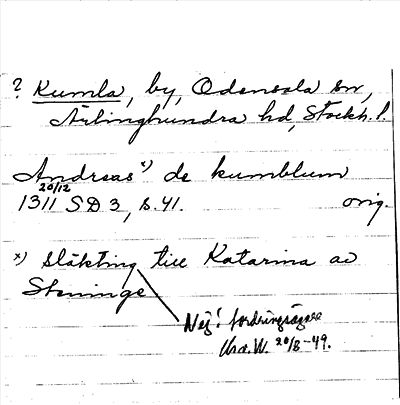 ? Kumla, by, Odensala sn,
Ärlinghundra hd, Stockh. l.
Andreas x) de kumblum
20/12
1311 SD 3, s. 41. orig.
x) släkting till Katarina av
Steninge
Nej! fordringsägare
W. 20/8-49.